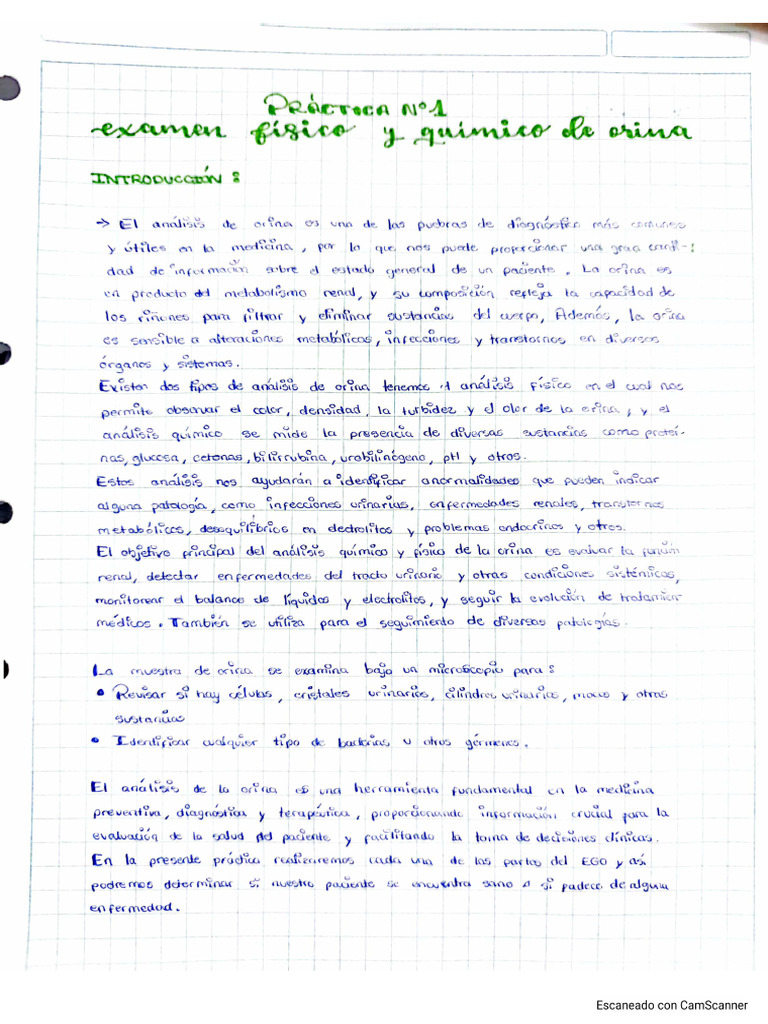 PRÁCTICA N°1
examen físico y químico de orina
INTRODUCCIÓN:
→ El análisis de orina es una de las puebras de diagnóstico más comunes
y útiles en la medicina, por lo que nos puede proporcionar una gran canti-
dad de información sobre el estado general de un paciente. La orina es
un producto del metabolismo renal, y su composición refleja la capacidad de
los riñones para filtrar y eliminar sustancias del cuerpo, Además, la orina
es sensible a alteraciones metabólicas, infecciones y transtornos en diversos
órganos y sistemas.
Existen dos tipos de análisis de orina tenemos el análisis físico en el cual nos
permite observar el color, densidad, la turbidez y el olor de la orina, y el
análisis químico se mide la presencia de diversas sustancias como proteí-
nas, glucosa, cetonas, bilirrubina, urobilinógeno, pH y otros.
Estos análisis nos ayudarán a identificar anormalidades que pueden indicar
alguna patología, como infecciones urinarias, enfermedades renales, transtornos
metabólicos, desequilibrios en electrolitos y problemas endocrinos y otros.
El objetivo principal del análisis químico y físico de la orina es evaluar la función
renal, detectar enfermedades del tracto urinario y otras condiciones sistémicas,
monitorear el balance de líquidos y electrolitos, y seguir la evolución de
médicos. También se utiliza para el seguimiento de diversas patologías.
La muestra de orina se examina bajo un microscopio para:
• Revisar si hay células, cristales urinarios, cilindros urinarios, moco y otras
sustancias
• Identificar cualquier tipo de bacterias u otros gérmenes.
El análisis de la orina es una herramienta fundamental en la medicina
preventiva, diagnóstica y terapéutica, proporcionando información crucial para la
evaluación de la salud del paciente y facilitando la toma de decisiones clínicas.
En la presente práctica realizaremos cada una de las partes del EGO y así
podremos determinar si nuestro paciente se encuentra sano o si padece de alguna
enfermedad.
Escaneado con CamScanner